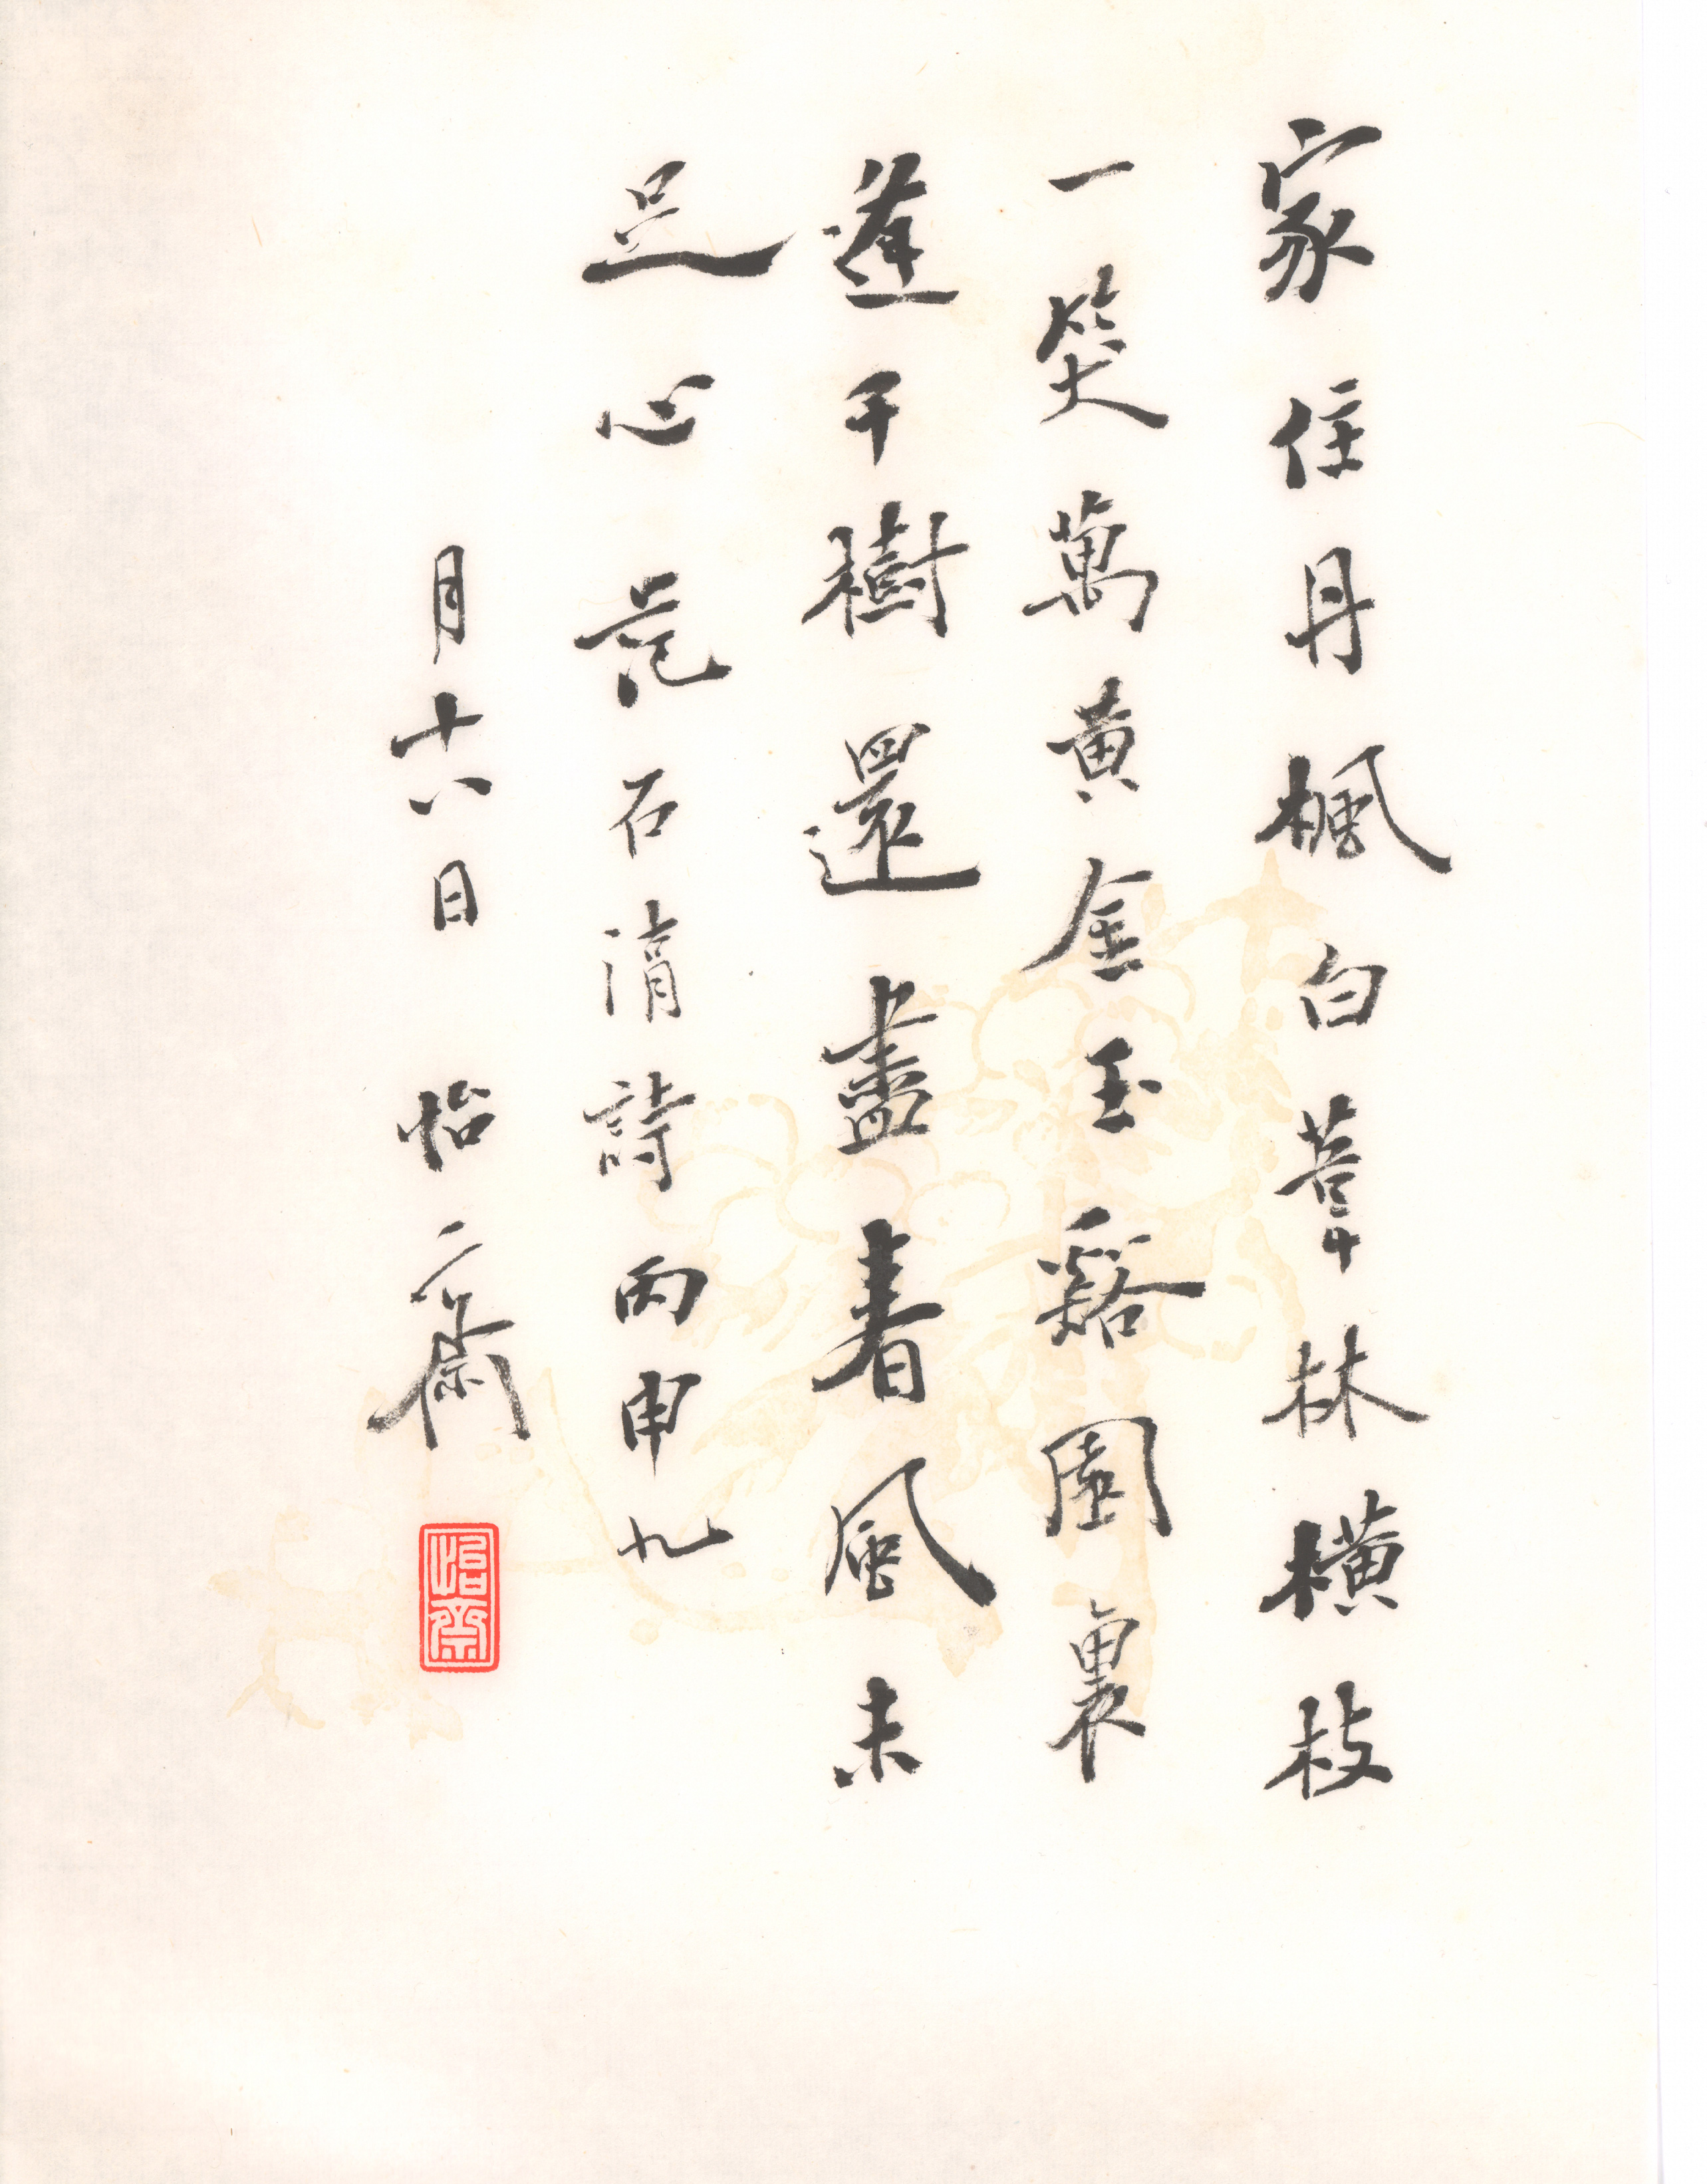 家住丹楓白葦林橫枝
一笑萬黃金玉谿園裏
逢千樹還盡春風未
足心 范石湖詩丙申九
月十八日 怡齋
怡齋